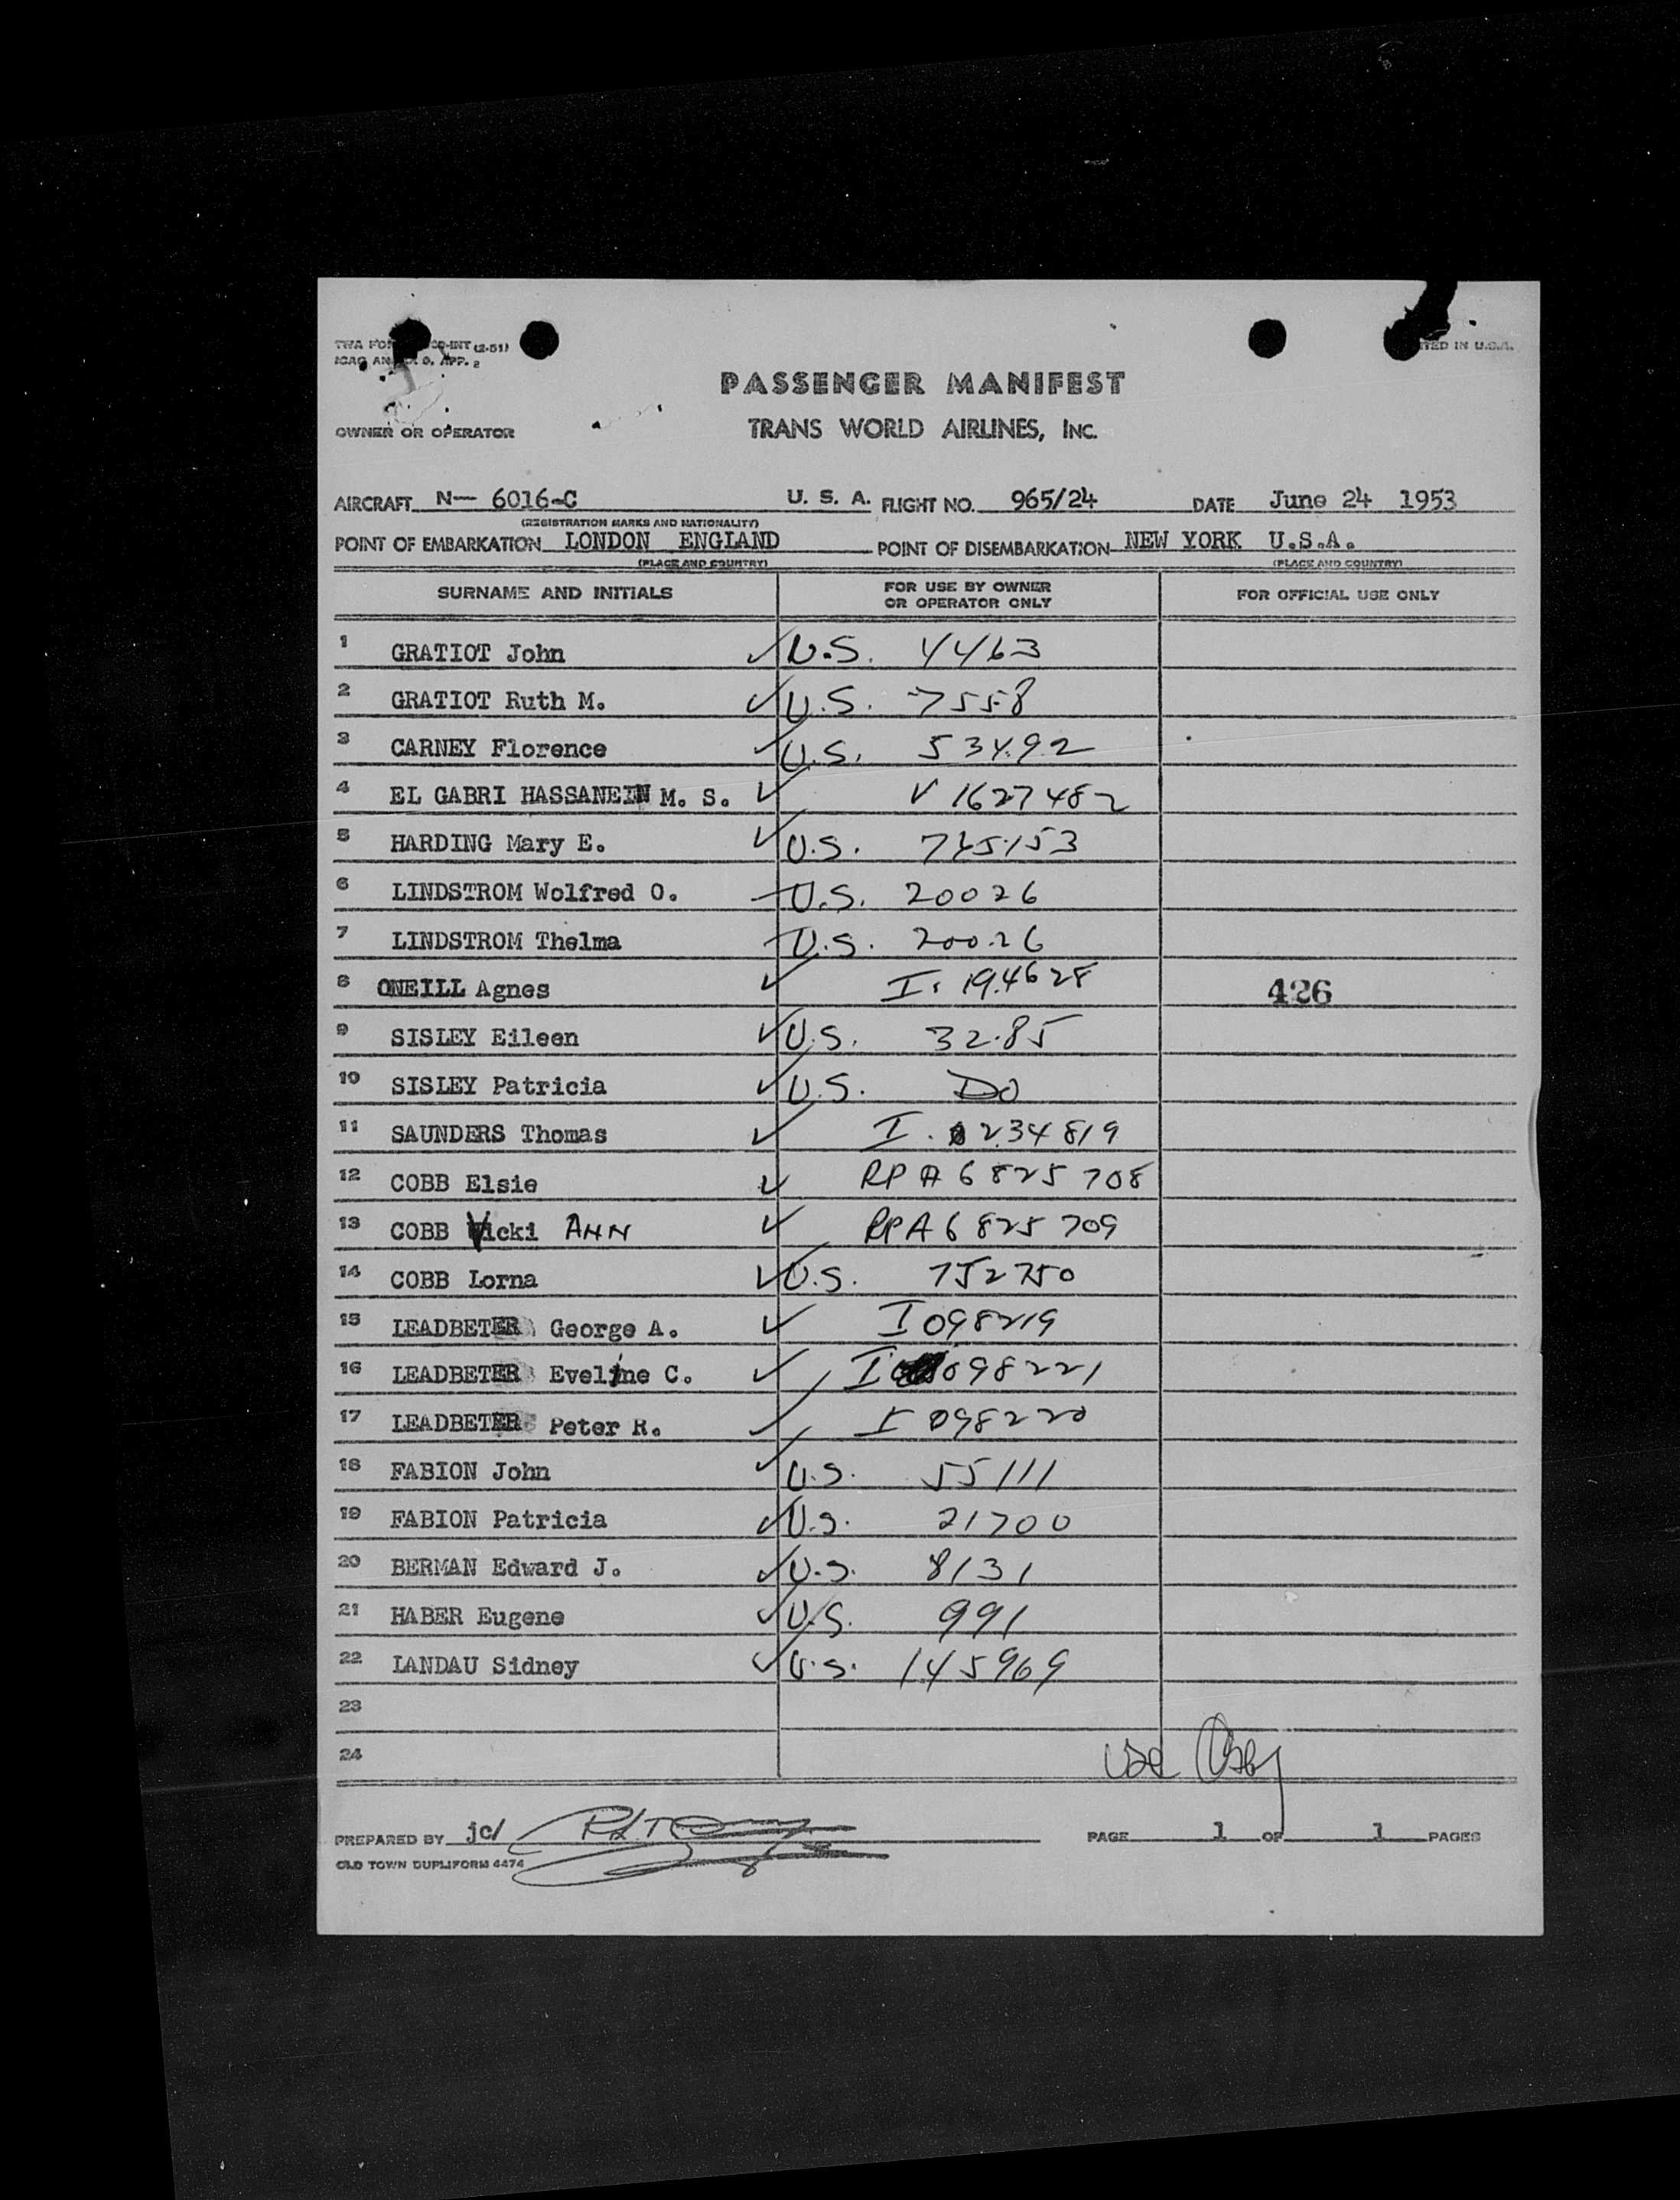 TWA FO CO-INT (2-51)
ICAO AN 9, APP. 2
TED IN U.S.A.
PASSENGER MANIFEST
OWNER OR OPERATOR TRANS WORLD AIRLINES, INC.
AIRCRAFT N— 6016-C U. S. A. FLIGHT NO. 965/24 DATE June 24 1953
(REGISTRATION MARKS AND NATIONALITY)
POINT OF EMBARKATION LONDON ENGLAND POINT OF DISEMBARKATION NEW YORK U.S.A.
(PLACE AND COUNTRY) (PLACE AND COUNTRY)
SURNAME AND INITIALS FOR USE BY OWNER OR OPERATOR ONLY FOR OFFICIAL USE ONLY
1 GRATIOT John ✓ U.S. 4463
2 GRATIOT Ruth M. ✓ U.S. 7558
3 CARNEY Florence ✓ U.S. 53492
4 EL GABRI HASSANEIN M. S. ✓ V 1627482
5 HARDING Mary E. ✓ U.S. 745153
6 LINDSTROM Wolfred O. U.S. 20026
7 LINDSTROM Thelma U.S. 20026
8 ONEILL Agnes ✓ I. 194628 426
9 SISLEY Eileen ✓ U.S. 3285
10 SISLEY Patricia ✓ U.S. DO
11 SAUNDERS Thomas ✓ I. 234819
12 COBB Elsie ✓ RP A 6825708
13 COBB Vicki ANN ✓ RP A 6825709
14 COBB Lorna ✓ U.S. 752750
15 LEADBETER George A. ✓ I 098219
16 LEADBETER Eveline C. ✓ I 098221
17 LEADBETER Peter R. ✓ I 098220
18 FABION John ✓ U.S. 55111
19 FABION Patricia ✓ U.S. 21700
20 BERMAN Edward J. ✓ U.S. 8131
21 HABER Eugene ✓ U.S. 991
22 LANDAU Sidney ✓ U.S. 145969
23
24
PREPARED BY jc/ PAGE 1 OF 1 PAGES
OLD TOWN DUPLIFORM 4474